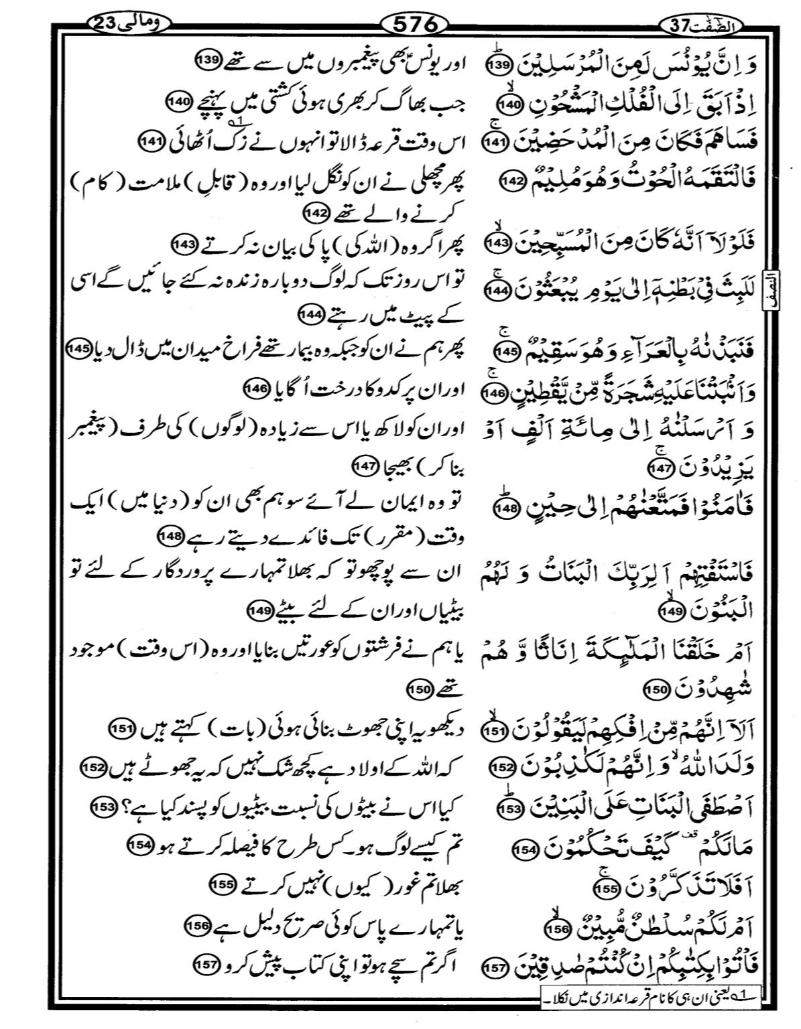 الصّٰفّٰت 37
576
ومالی 23
وَ اِنَّ يُوْنُسَ لَمِنَ الْمُرْسَلِيْنَ ؕ 139
اور یونسؑ بھی پیغمبروں میں سے تھے 139
اِذْ اَبَقَ اِلَى الْفُلْكِ الْمَشْحُوْنِ ۙ 140
جب بھاگ کر بھری ہوئی کشتی میں پہنچے 140
فَسَاهَمَ فَكَانَ مِنَ الْمُدْحَضِيْنَ ۚ 141
اس وقت قرعہ ڈالا تو انہوں نے زک اُٹھائی 1؎ 141
فَالْتَقَمَهُ الْحُوْتُ وَ هُوَ مُلِيْمٌ 142
پھر مچھلی نے ان کو نگل لیا اور وہ (قابلِ) ملامت (کام)
کرنے والے تھے 142
فَلَوْ لَاۤ اَنَّهٗ كَانَ مِنَ الْمُسَبِّحِيْنَ ۙ 143
پھر اگر وہ (اللہ کی) پاکی بیان نہ کرتے 143
النصف
لَلَبِثَ فِيْ بَطْنِهٖۤ اِلٰى يَوْمِ يُبْعَثُوْنَ ۚ 144
تو اس روز تک کہ لوگ دوبارہ زندہ نہ کئے جائیں گے اسی
کے پیٹ میں رہتے 144
فَنَبَذْنٰهُ بِالْعَرَآءِ وَ هُوَ سَقِيْمٌ ۚ 145
پھر ہم نے ان کو جبکہ وہ بیمار تھے فراخ میدان میں ڈال دیا 145
وَ اَنْۢبَتْنَا عَلَيْهِ شَجَرَةً مِّنْ يَّقْطِيْنٍ ۚ 146
اور ان پر کدو کا درخت اُگایا 146
وَ اَرْسَلْنٰهُ اِلٰى مِائَةِ اَلْفٍ اَوْ
اور ان کو لاکھ یا اس سے زیادہ (لوگوں) کی طرف (پیغمبر
يَزِيْدُوْنَ ۚ 147
بنا کر) بھیجا 147
فَاٰمَنُوْا فَمَتَّعْنٰهُمْ اِلٰى حِيْنٍ ؕ 148
تو وہ ایمان لے آئے سو ہم بھی ان کو (دنیا میں) ایک
وقت (مقرر) تک فائدے دیتے رہے 148
فَاسْتَفْتِهِمْ اَلِرَبِّكَ الْبَنَاتُ وَ لَهُمُ
ان سے پوچھو تو کہ بھلا تمہارے پروردگار کے لئے تو
الْبَنُوْنَ ۙ 149
بیٹیاں اور ان کے لئے بیٹے 149
اَمْ خَلَقْنَا الْمَلٰٓئِكَةَ اِنَاثًا وَّ هُمْ
یا ہم نے فرشتوں کو عورتیں بنایا اور وہ (اس وقت) موجود
شٰهِدُوْنَ 150
تھے 150
اَلَاۤ اِنَّهُمْ مِّنْ اِفْكِهِمْ لَيَقُوْلُوْنَ ۙ 151
دیکھو یہ اپنی جھوٹ بنائی ہوئی (بات) کہتے ہیں 151
وَلَدَ اللّٰهُ ۙ وَ اِنَّهُمْ لَكٰذِبُوْنَ 152
کہ اللہ کے اولاد ہے کچھ شک نہیں کہ یہ جھوٹے ہیں 152
اَصْطَفَى الْبَنَاتِ عَلَى الْبَنِيْنَ ؕ 153
کیا اس نے بیٹوں کی نسبت بیٹیوں کو پسند کیا ہے؟ 153
مَا لَكُمْ ۫ كَيْفَ تَحْكُمُوْنَ 154
تم کیسے لوگ ہو۔ کس طرح کا فیصلہ کرتے ہو 154
اَفَلَا تَذَكَّرُوْنَ ۚ 155
بھلا تم غور (کیوں) نہیں کرتے 155
اَمْ لَكُمْ سُلْطٰنٌ مُّبِيْنٌ ۙ 156
یا تمہارے پاس کوئی صریح دلیل ہے 156
فَاْتُوْا بِكِتٰبِكُمْ اِنْ كُنْتُمْ صٰدِقِيْنَ 157
اگر تم سچے ہو تو اپنی کتاب پیش کرو 157
1؎ یعنی ان ہی کا نام قرعہ اندازی میں نکلا۔